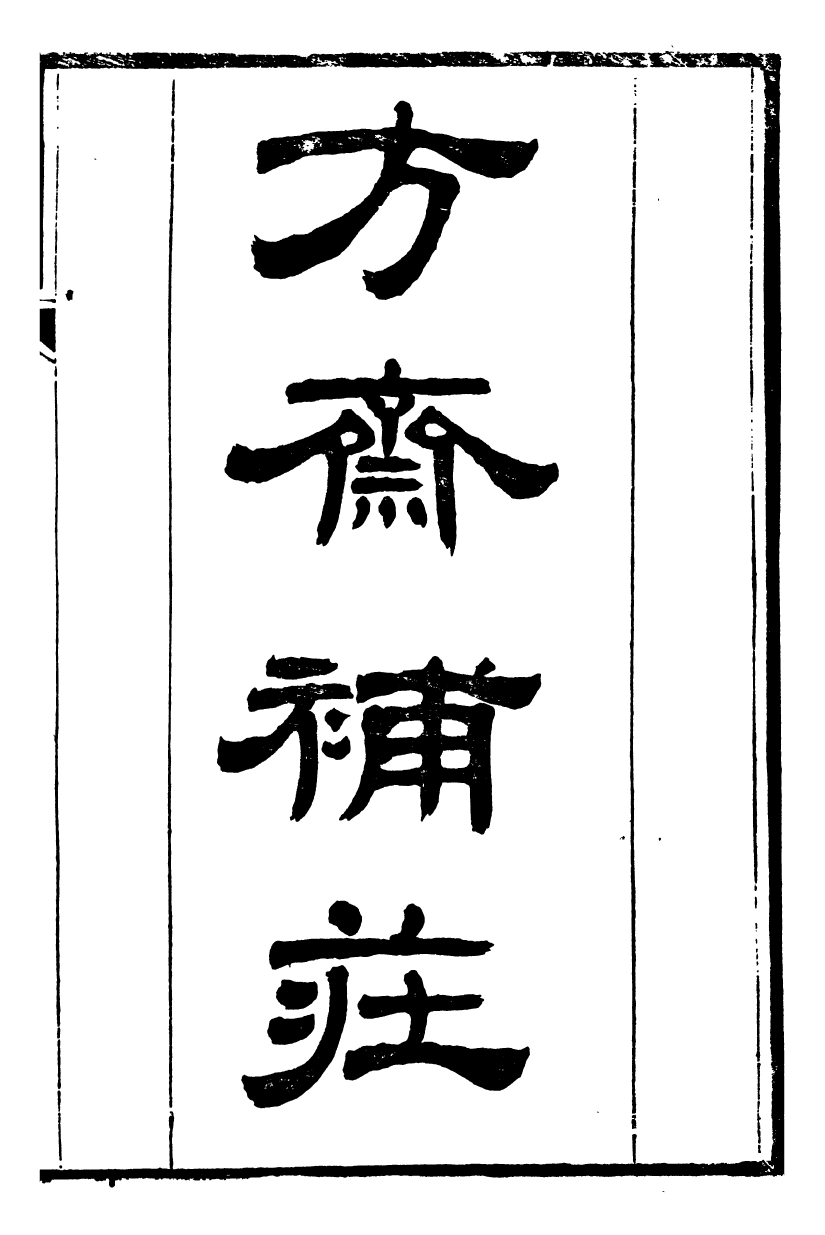 方齋補莊